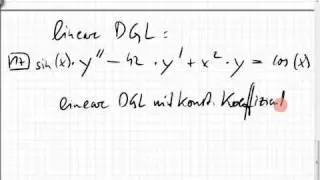 lineare DGL:
sin(x)·y'' − 42·y' + x²·y = cos(x)
lineare DGL mit konst. Koeffizient